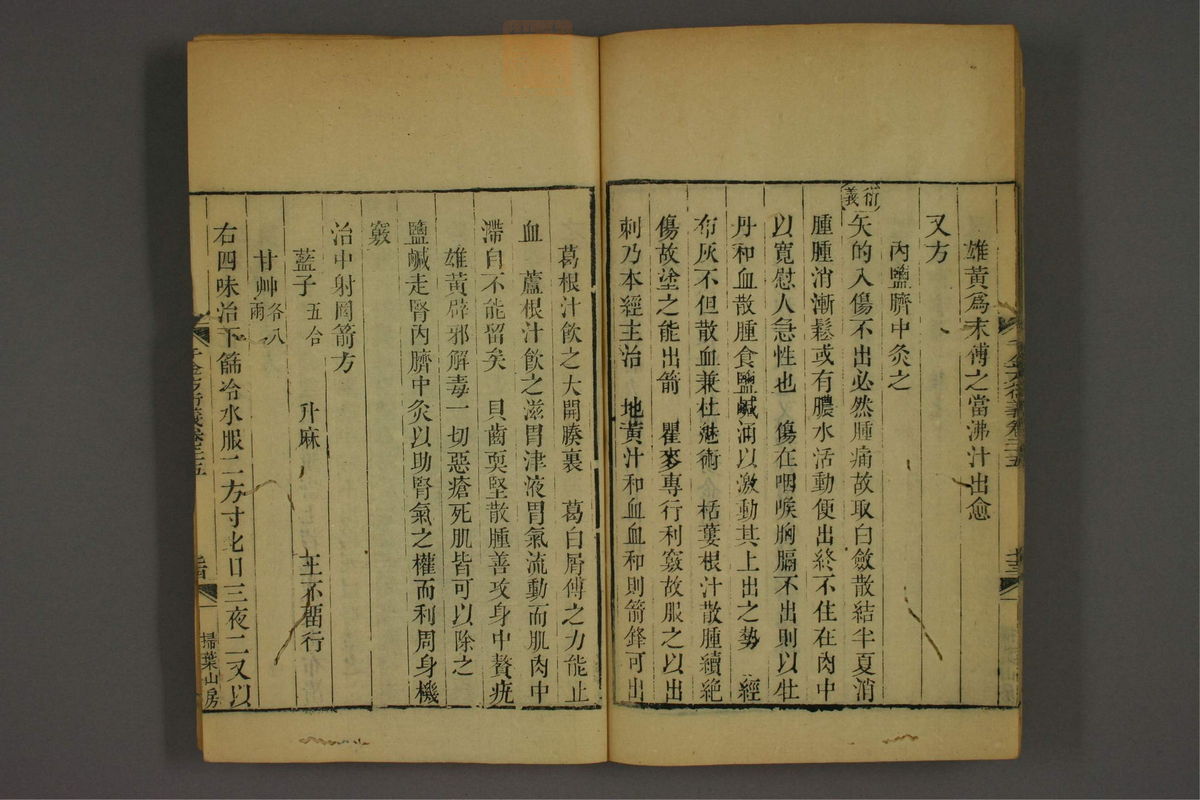 雄黃爲末傅之當沸汁出愈
又方
內鹽臍中灸之
衍義
矢的入傷不出必然腫痛故取白斂散結半夏消
腫腫消漸鬆或有膿水活動便出終不住在肉中
以寬慰人急性也 傷在咽喉胸膈不出則以牡
丹和血散腫食鹽鹹涌以激動其上出之勢 經
布灰不但散血兼杜魅術 栝蔞根汁散腫續絕
傷故塗之能出箭 瞿麥專行利竅故服之以出
刺乃本經主治 地黃汁和血血和則箭鋒可出
葛根汁飲之大開腠裏 葛白屑傅之力能止
血 蘆根汁飲之滋胃津液胃氣流動而肌肉中
滯自不能留矣 貝齒耎堅散腫善攻身中贅疣
雄黃辟邪解毒一切惡瘡死肌皆可以除之
鹽鹹走腎內臍中灸以助腎氣之權而利周身機
竅
治中射罔箭方
藍子 五合 升麻 王不畱行
甘艸 各八兩
右四味治下篩冷水服二方寸匕日三夜二又以
千金方衍義卷二十五
掃葉山房